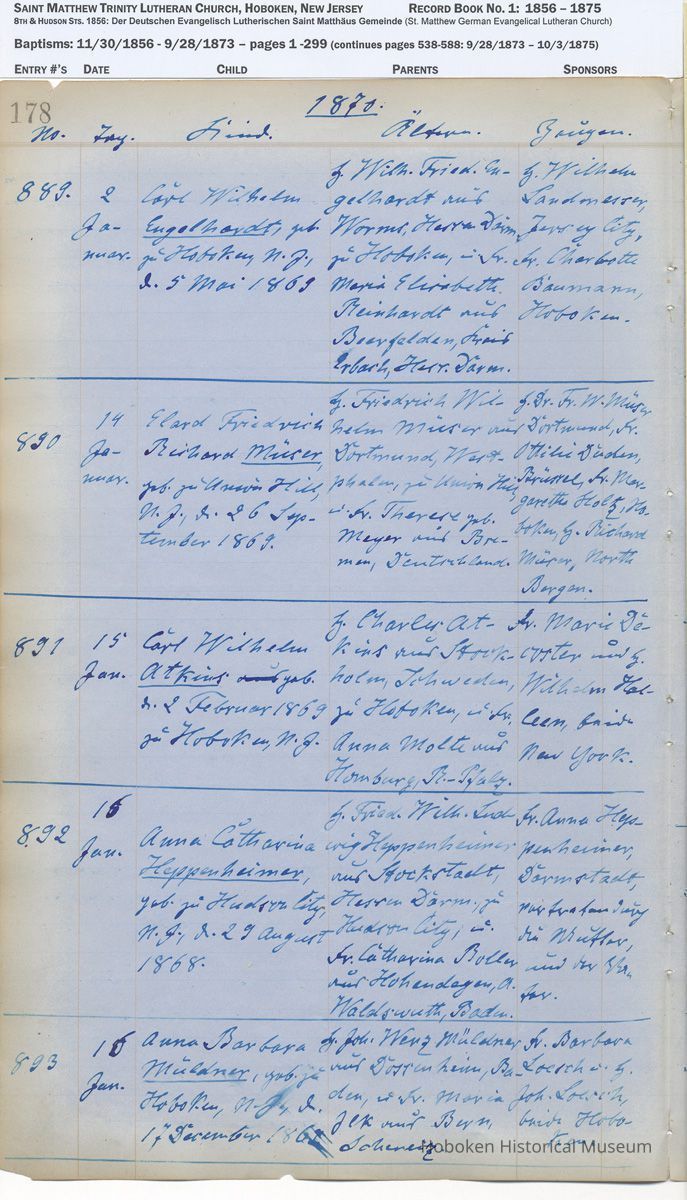 SAINT MATTHEW TRINITY LUTHERAN CHURCH, HOBOKEN, NEW JERSEY RECORD BOOK NO. 1: 1856 – 1875
8TH & HUDSON STS. 1856: Der Deutschen Evangelisch Lutherischen Saint Matthäus Gemeinde (St. Matthew German Evangelical Lutheran Church)
Baptisms: 11/30/1856 - 9/28/1873 – pages 1 -299 (continues pages 538-588: 9/28/1873 – 10/3/1875)
ENTRY #'S DATE CHILD PARENTS SPONSORS
178
1870.
No. Tag. Kind. Ältern. Zeugen.
889.
2
Ja-
nuar.
Carl Wilhelm
Engelhardt, geb.
zu Hoboken, N. J.,
d. 5 Mai 1869
H. Wilh. Fried. En-
gelhardt aus
Worms, Hessen Darm.
zu Hoboken, u. Fr.
Maria Elisabeth
Reinhardt aus
Beerfelden, Kreis
Erbach, Hess. Darm.
H. Wilhelm
Landmesser,
Jersey City,
Fr. Charlotte
Baumann,
Hoboken.
890
14
Ja-
nuar.
Elard Friedrich
Richard Müser,
geb. zu Union Hill,
N. J., d. 26 Sep-
tember 1869.
H. Friedrich Wil-
helm Müser aus
Dortmund, West-
phalen, zu Union Hill,
u. Fr. Therese geb.
Meyer aus Bre-
men, Deutschland.
H. Dr. Fr. W. Müser
Dortmund, Fr.
Ottilie Düden,
Brüssel, Fr. Mar-
garetha Holtz, Ho-
boken, H. Richard
Müser, North
Bergen.
891
15
Jan.
Carl Wilhelm
Atkins aus geb.
d. 2 Februar 1869
zu Hoboken, N. J.
H. Charles At-
kins aus Stock-
holm, Schweden,
zu Hoboken, u. Fr.
Anna Molte aus
Homburg, R.-Pfalz.
Fr. Marie De-
coster und H.
Wilhelm Hal-
leen, beide
New York.
892
16
Jan.
Anna Catharina
Heppenheimer,
geb. zu Hudson City,
N. J., d. 29 August
1868.
H. Fried. Wilh. Lud-
wig Heppenheimer
aus Stockstadt,
Hessen Darm., zu
Hudson City, u.
Fr. Catharina Boller
aus Hohendagen, A.
Waldswuth, Baden.
Fr. Anna Hep-
penheimer,
Darmstadt,
vertreten durch
die Mutter,
und der Va-
ter.
893
16
Jan.
Anna Barbara
Müldner, geb. zu
Hoboken, N. J., d.
17 December
H. Joh. Müldner
aus Dossenheim, Ba-
den, u. Fr. Maria
Jlk aus Bern,
Schweiz.
Fr. Barbara
Loesch u. H.
Joh. Loesch,
beide Hobo-
ken.
Hoboken Historical Museum